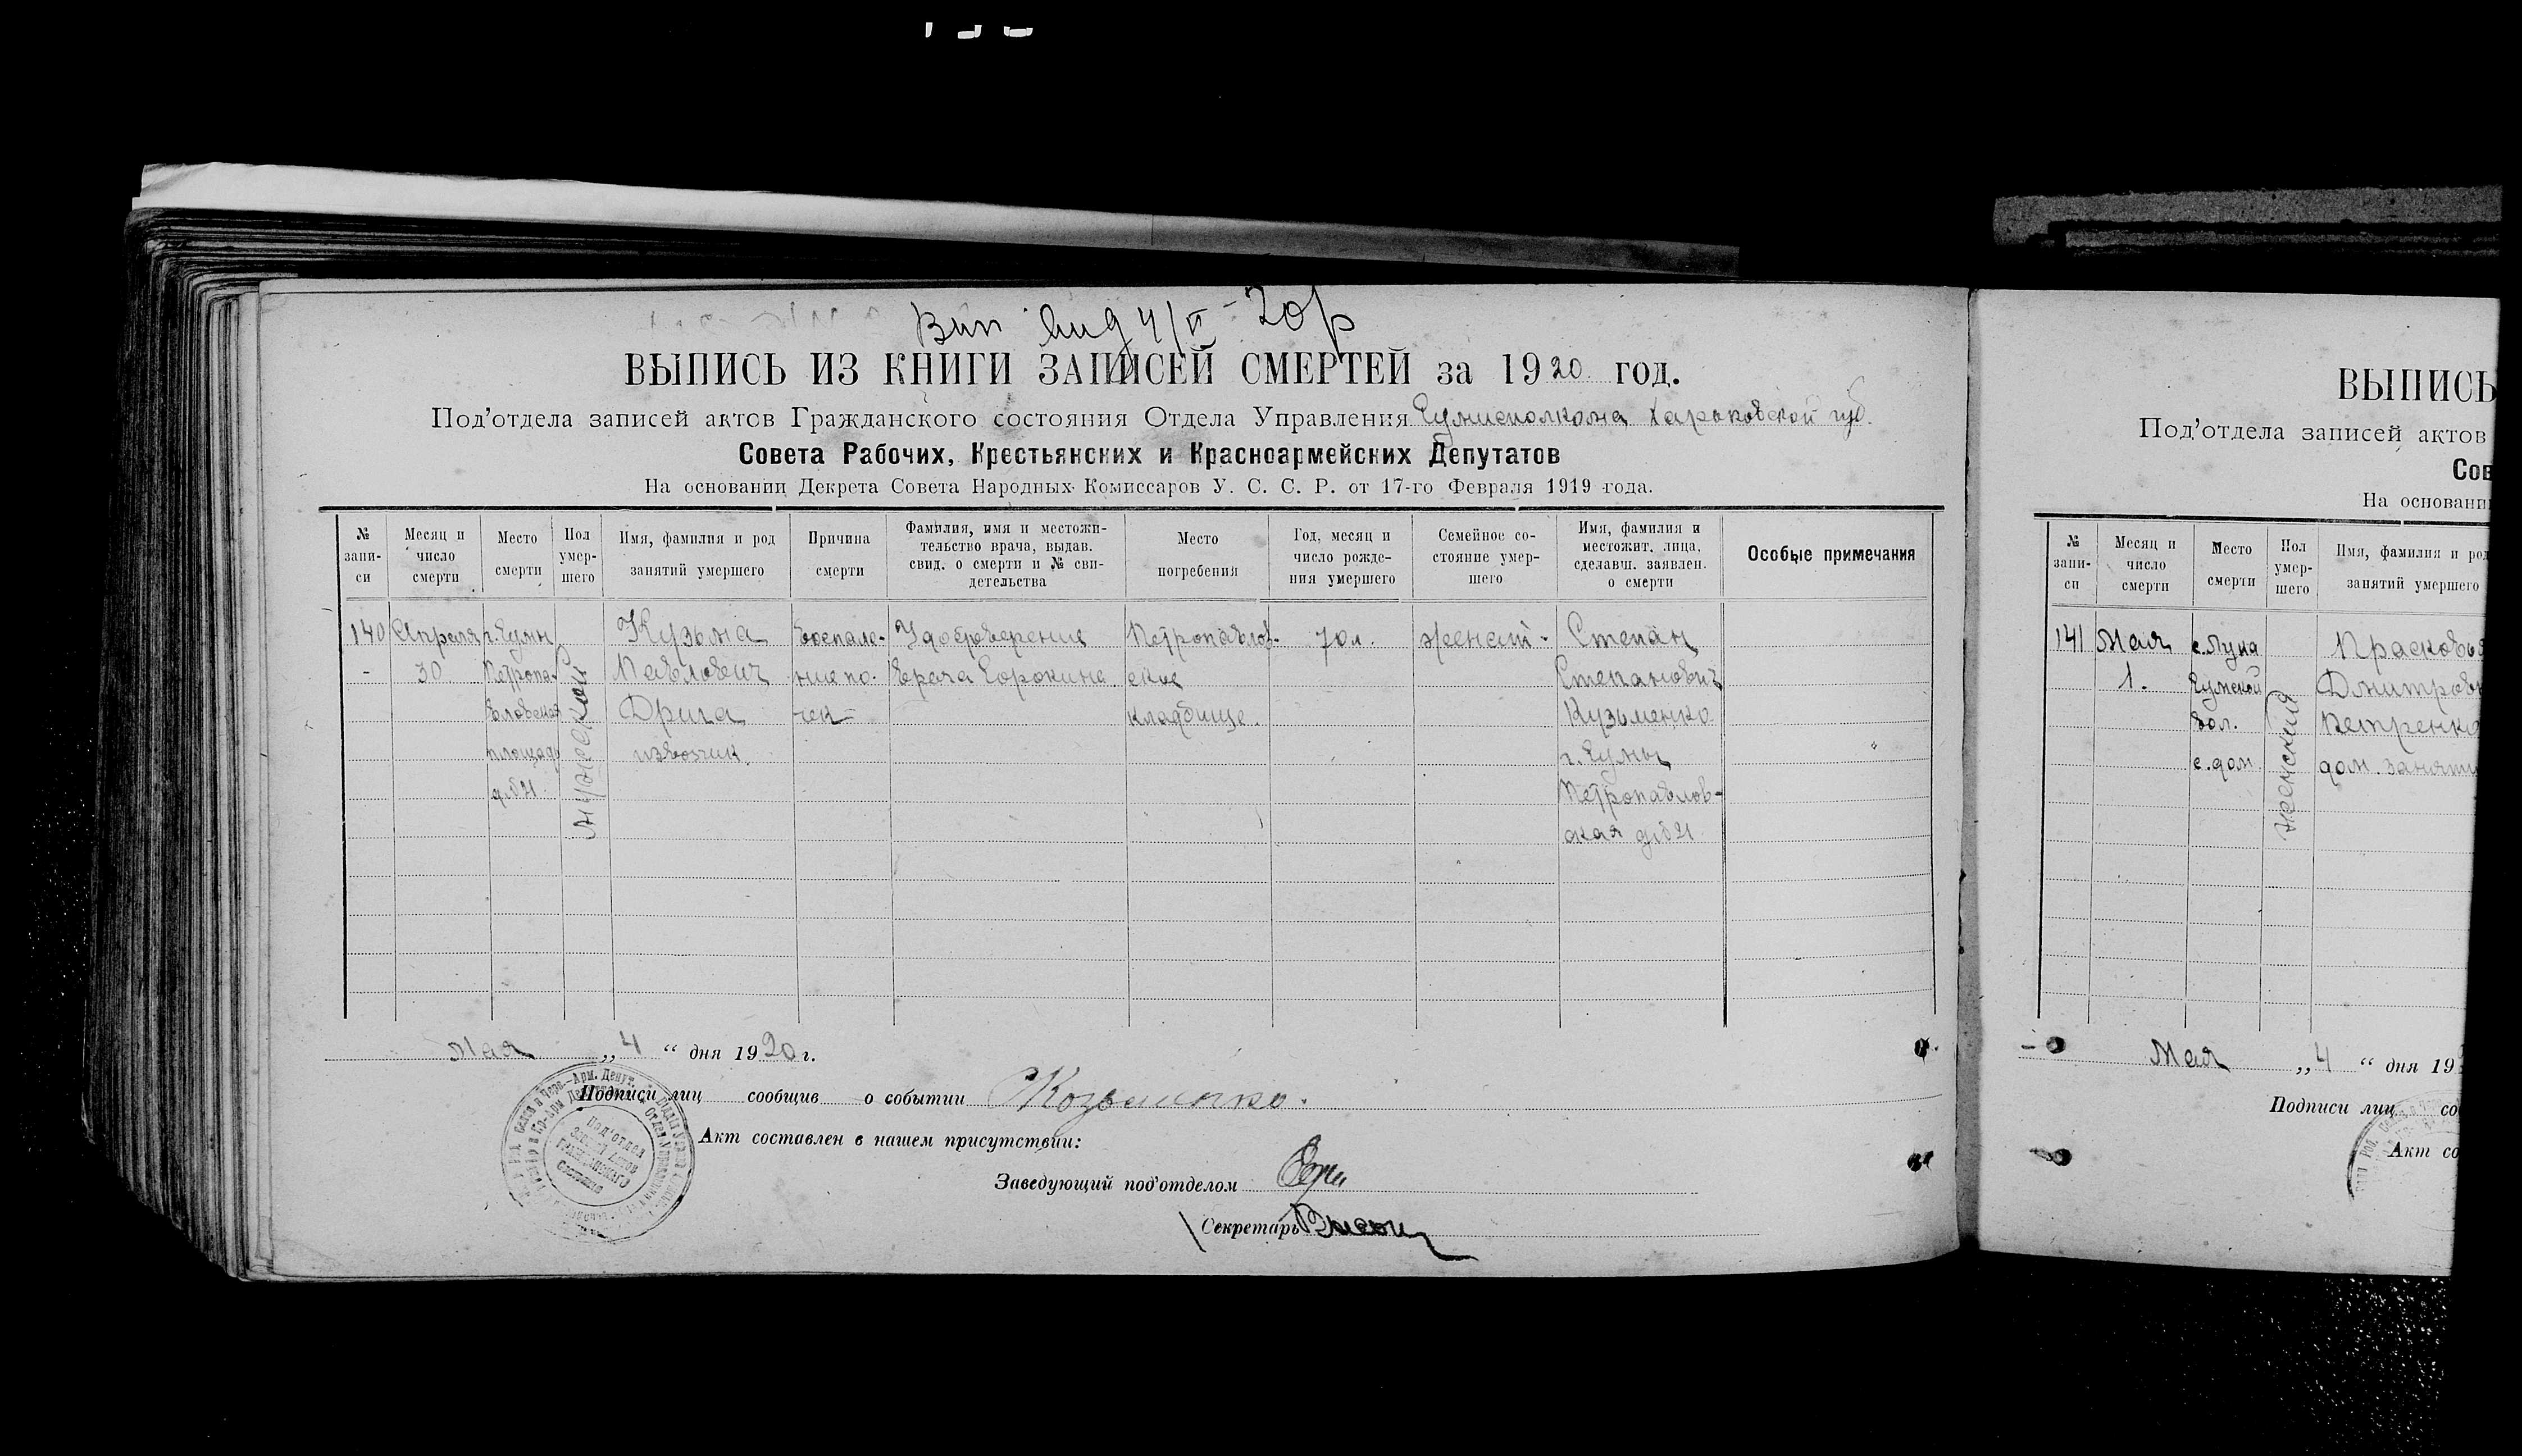 Вип вид 4/V - 20 р
ВЫПИСЬ ИЗ КНИГИ ЗАПИСЕЙ СМЕРТЕЙ за 1920 год.
Под'отдела записей актов Гражданского состояния Отдела Управления Сумисполкома Харьковской губ.
Совета Рабочих, Крестьянских и Красноармейских Депутатов
На основании Декрета Совета Народных Комиссаров У. С. С. Р. от 17-го Февраля 1919 года.
№ запи- си
Месяц и число смерти
Место смерти
Пол умер- шего
Имя, фамилия и род занятий умершего
Причина смерти
Фамилия, имя и местожи- тельство врача, выдав. свид. о смерти и № сви- детельства
Место погребения
Год, месяц и число рожде- ния умершего
Семейное со- стояние умер- шего
Имя, фамилия и местожит. лица, сделавш. заявлен. о смерти
Особые примечания
140
Апреля
30
г. Сумы
Петропа-
вловская
площадь
д. № 21
мужской
Кузьма
Павлович
Дрига
извозчик.
Воспале-
ние по-
чек
Удостоверение
врача Сорокина
Петропавлов-
ское
кладбище.
70 л.
женат.
Степан
Степанович
Кузьменко
г. Сумы
Петропавлов-
ская д. № 21
Мая „ 4 “ дня 1920 г.
Подписи лиц сообщив о событии Козьменко.
Акт составлен в нашем присутствии:
Заведующий под'отделом
Секретарь
Под'отдел
Записи Актов
Гражданского
Состояния
ВЫПИСЬ
Под'отдела записей актов
Сов
На основани
№ запи- си
Месяц и число смерти
Место смерти
Пол умер- шего
Имя, фамилия и род занятий умершего
141
Мая
1.
с. Лука
Сумской
вол.
с. дом
женский
Прасковья
Дмитровн
Петренко
дом. заняти
Мая „ 4 “ дня 19
Подписи лиц со
Акт со